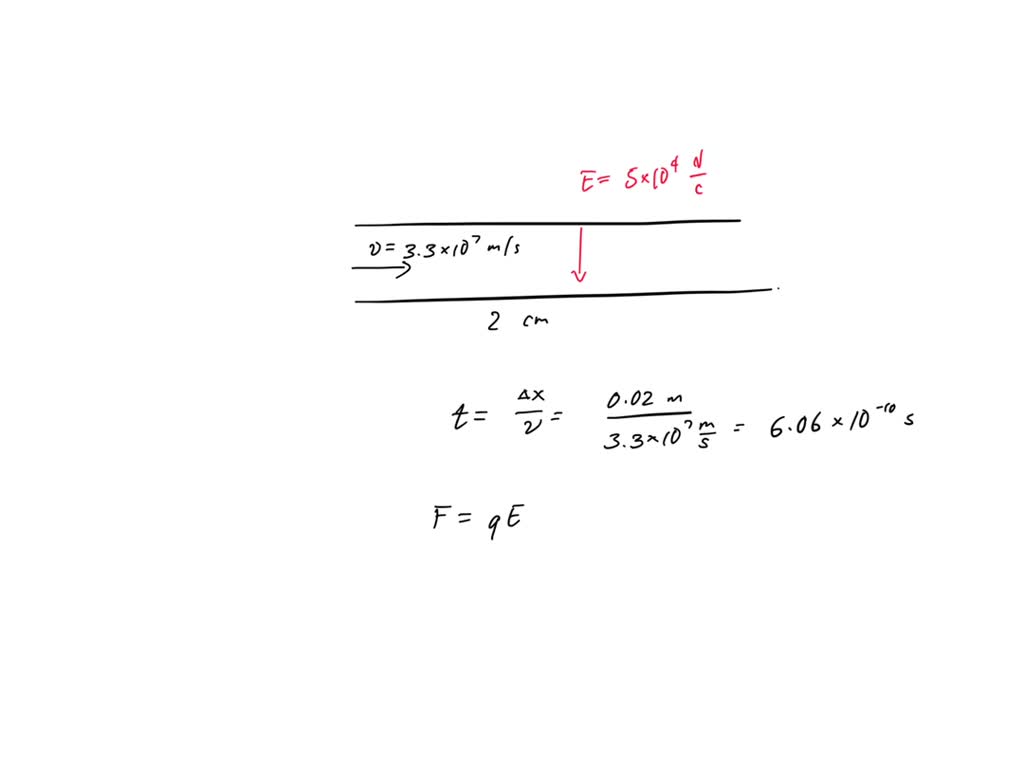 E = 5×10⁴ N/C
v = 3.3×10⁷ m/s
2 cm
t = Δx/v = 0.02 m / 3.3×10⁷ m/s = 6.06 × 10⁻¹⁰ s
F = qE